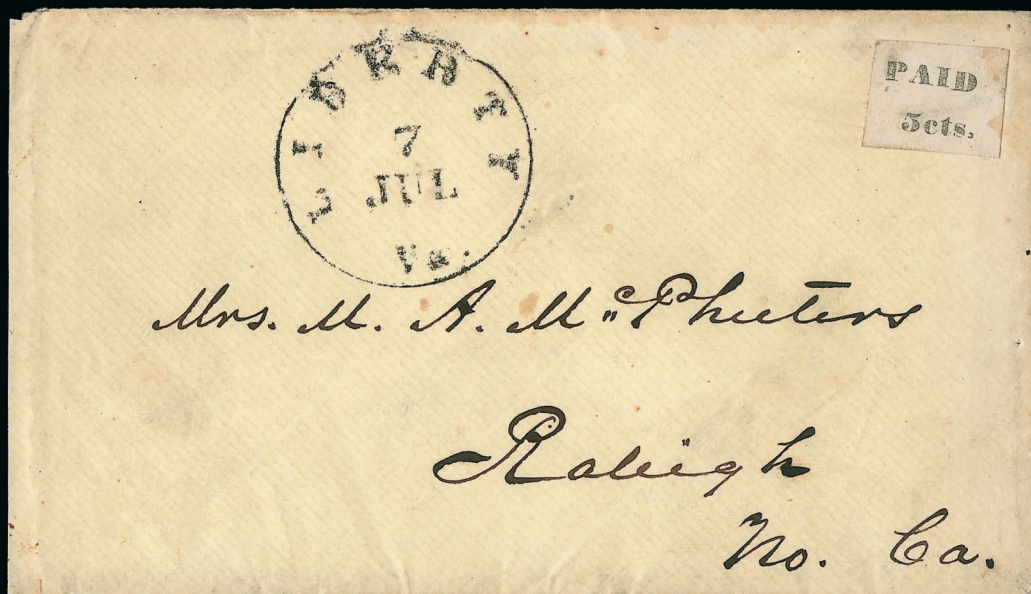 LIBERTY
7
JUL
Va.
PAID
5cts.
Mrs. M. A. McPheeters
Raleigh
No. Ca.